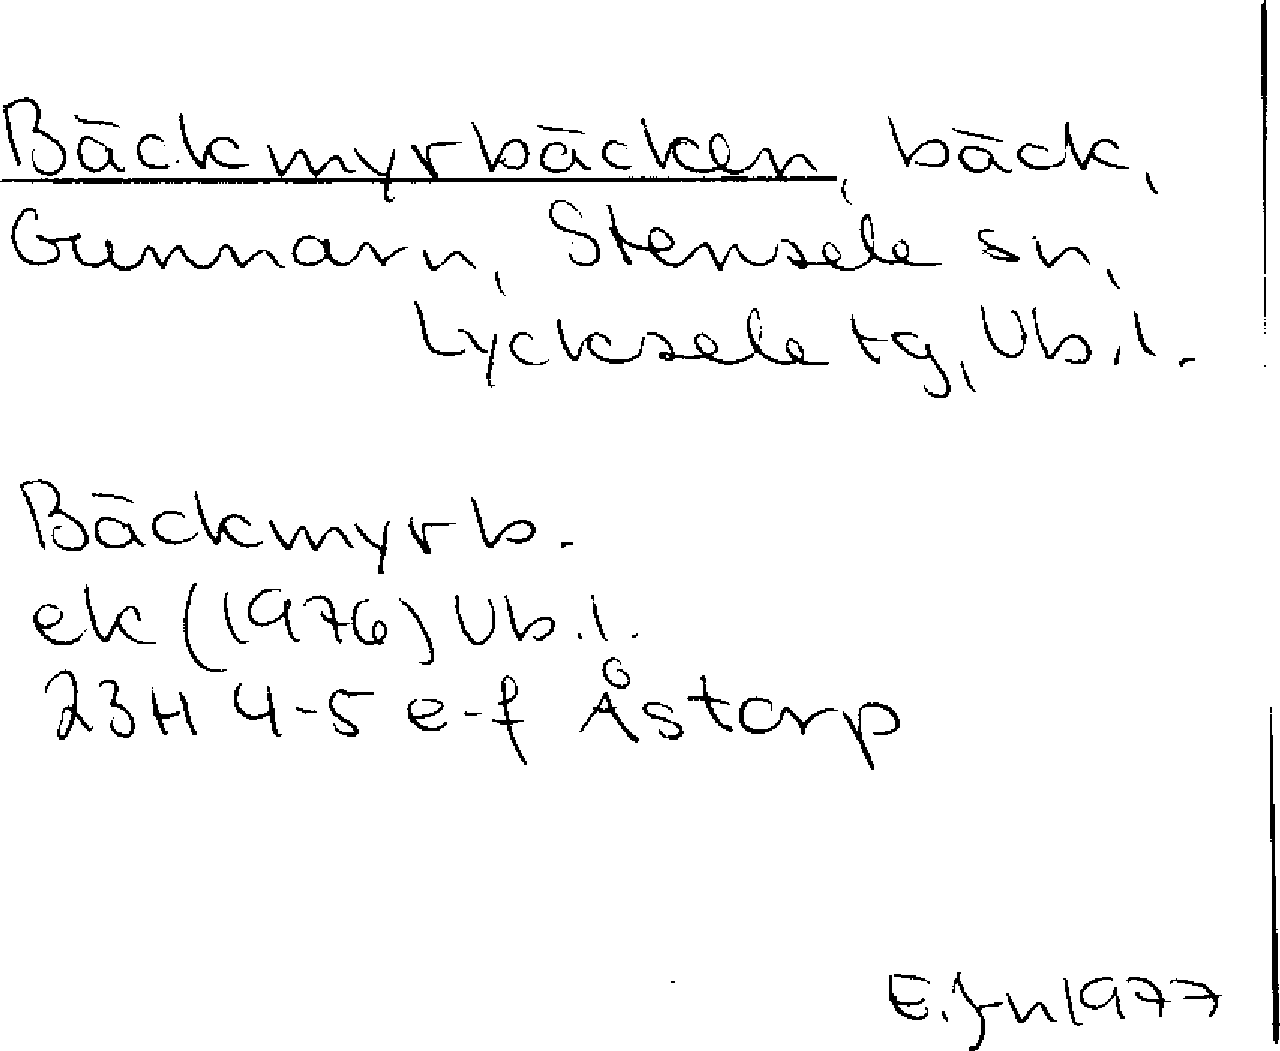 Bäckmyrbäcken, bäck,
Gunnarn, Stensele sn,
Lycksele tg, Vb.l.
Bäckmyrb.
ek (1976) Vb.l.
23H 4-5 e-f Åstorp
E. Jn 1977